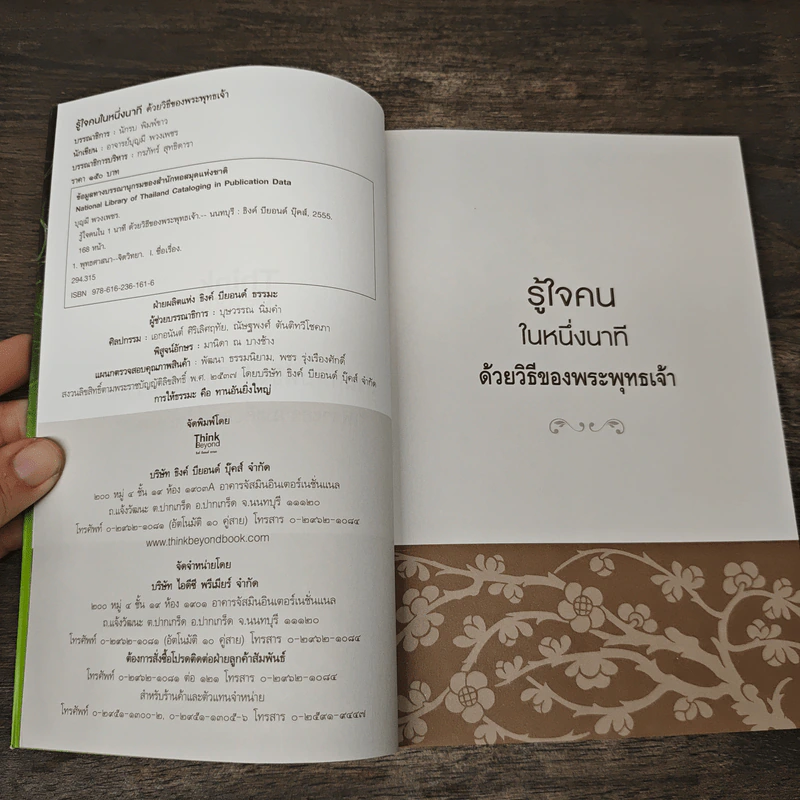 รู้ใจคนในหนึ่งนาที ด้วยวิธีของพระพุทธเจ้า
บรรณาธิการ : นักรบ พิมพ์ขาว
นักเขียน : อาจารย์บุญมี พวงเพชร
บรรณาธิการบริหาร : กรภัทร์ สุทธิดารา
ราคา ๑๕๐ บาท
ข้อมูลทางบรรณานุกรมของสำนักหอสมุดแห่งชาติ
National Library of Thailand Cataloging in Publication Data
บุญมี พวงเพชร.
รู้ใจคนใน 1 นาที ด้วยวิธีของพระพุทธเจ้า.-- นนทบุรี : ธิงค์ บียอนด์ บุ๊คส์, 2555.
168 หน้า.
1. พุทธศาสนา--จิตวิทยา. I. ชื่อเรื่อง.
294.315
ISBN 978-616-236-161-6
ฝ่ายผลิตแห่ง ธิงค์ บียอนด์ ธรรมะ
ผู้ช่วยบรรณาธิการ : บุษวรรณ นิ่มคำ
ศิลปกรรม : เอกอนันต์ ศิริเลิศฤทัย, ณัษฐพงศ์ ตันติทวีโชคภา
พิสูจน์อักษร : มานิดา ณ บางช้าง
แผนกตรวจสอบคุณภาพสินค้า : พัฒนา ธรรมนิยาม, พชร รุ่งเรืองศักดิ์
สงวนลิขสิทธิ์ตามพระราชบัญญัติลิขสิทธิ์ พ.ศ. ๒๕๓๗ โดยบริษัท ธิงค์ บียอนด์ บุ๊คส์ จำกัด
การให้ธรรมะ คือ ทานอันยิ่งใหญ่
จัดพิมพ์โดย
Think
Beyond
บริษัท ธิงค์ บียอนด์ บุ๊คส์ จำกัด
๒๐๐ หมู่ ๔ ชั้น ๑๙ ห้อง ๑๙๐๓A อาคารจัสมินอินเตอร์เนชั่นแนล
ถ.แจ้งวัฒนะ ต.ปากเกร็ด อ.ปากเกร็ด จ.นนทบุรี ๑๑๑๒๐
โทรศัพท์ ๐-๒๙๖๒-๑๐๘๑ (อัตโนมัติ ๑๐ คู่สาย) โทรสาร ๐-๒๙๖๒-๑๐๘๔
www.thinkbeyondbook.com
จัดจำหน่ายโดย
บริษัท ไอดีซี พรีเมียร์ จำกัด
๒๐๐ หมู่ ๔ ชั้น ๑๙ ห้อง ๑๙๐๑ อาคารจัสมินอินเตอร์เนชั่นแนล
ถ.แจ้งวัฒนะ ต.ปากเกร็ด อ.ปากเกร็ด จ.นนทบุรี ๑๑๑๒๐
โทรศัพท์ ๐-๒๙๖๒-๑๐๘๑ (อัตโนมัติ ๑๐ คู่สาย) โทรสาร ๐-๒๙๖๒-๑๐๘๔
ต้องการสั่งซื้อโปรดติดต่อฝ่ายลูกค้าสัมพันธ์
โทรศัพท์ ๐-๒๙๖๒-๑๐๘๑ ต่อ ๑๒๑ โทรสาร ๐-๒๙๖๒-๑๐๘๔
สำหรับร้านค้าและตัวแทนจำหน่าย
โทรศัพท์ ๐-๒๙๕๑-๑๓๐๐-๒, ๐-๒๙๕๑-๑๓๐๕-๖ โทรสาร ๐-๒๕๙๑-๙๔๔๗
รู้ใจคน
ในหนึ่งนาที
ด้วยวิธีของพระพุทธเจ้า